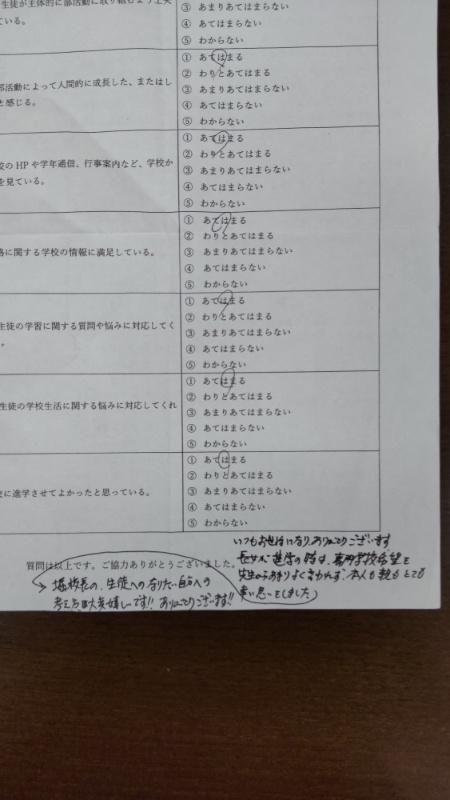 生徒が主体的に部活動に取り組むよう工夫
ている。
③ あまりあてはまらない
④ あてはまらない
⑤ わからない
部活動によって人間的に成長した、またはし
と感じる。
① あてはまる
② わりとあてはまる
③ あまりあてはまらない
④ あてはまらない
⑤ わからない
校の HP や学年通信、行事案内など、学校か
を見ている。
① あてはまる
② わりとあてはまる
③ あまりあてはまらない
④ あてはまらない
⑤ わからない
路に関する学校の情報に満足している。
① あてはまる
② わりとあてはまる
③ あまりあてはまらない
④ あてはまらない
⑤ わからない
生徒の学習に関する質問や悩みに対応してく
。
① あてはまる
② わりとあてはまる
③ あまりあてはまらない
④ あてはまらない
⑤ わからない
生徒の学校生活に関する悩みに対応してくれ
① あてはまる
② わりとあてはまる
③ あまりあてはまらない
④ あてはまらない
⑤ わからない
校に進学させてよかったと思っている。
① あてはまる
② わりとあてはまる
③ あまりあてはまらない
④ あてはまらない
⑤ わからない
質問は以上です。ご協力ありがとうございました。
堀校長の、生徒への なりたい自分への
考え方 大変嬉しいです!! ありがとうございます!!
いつもお世話になり、ありがとうございます
長女が進学の時は、専門学校希望を
先生から あまりよく言われず、本人も親もとても
思いをしました